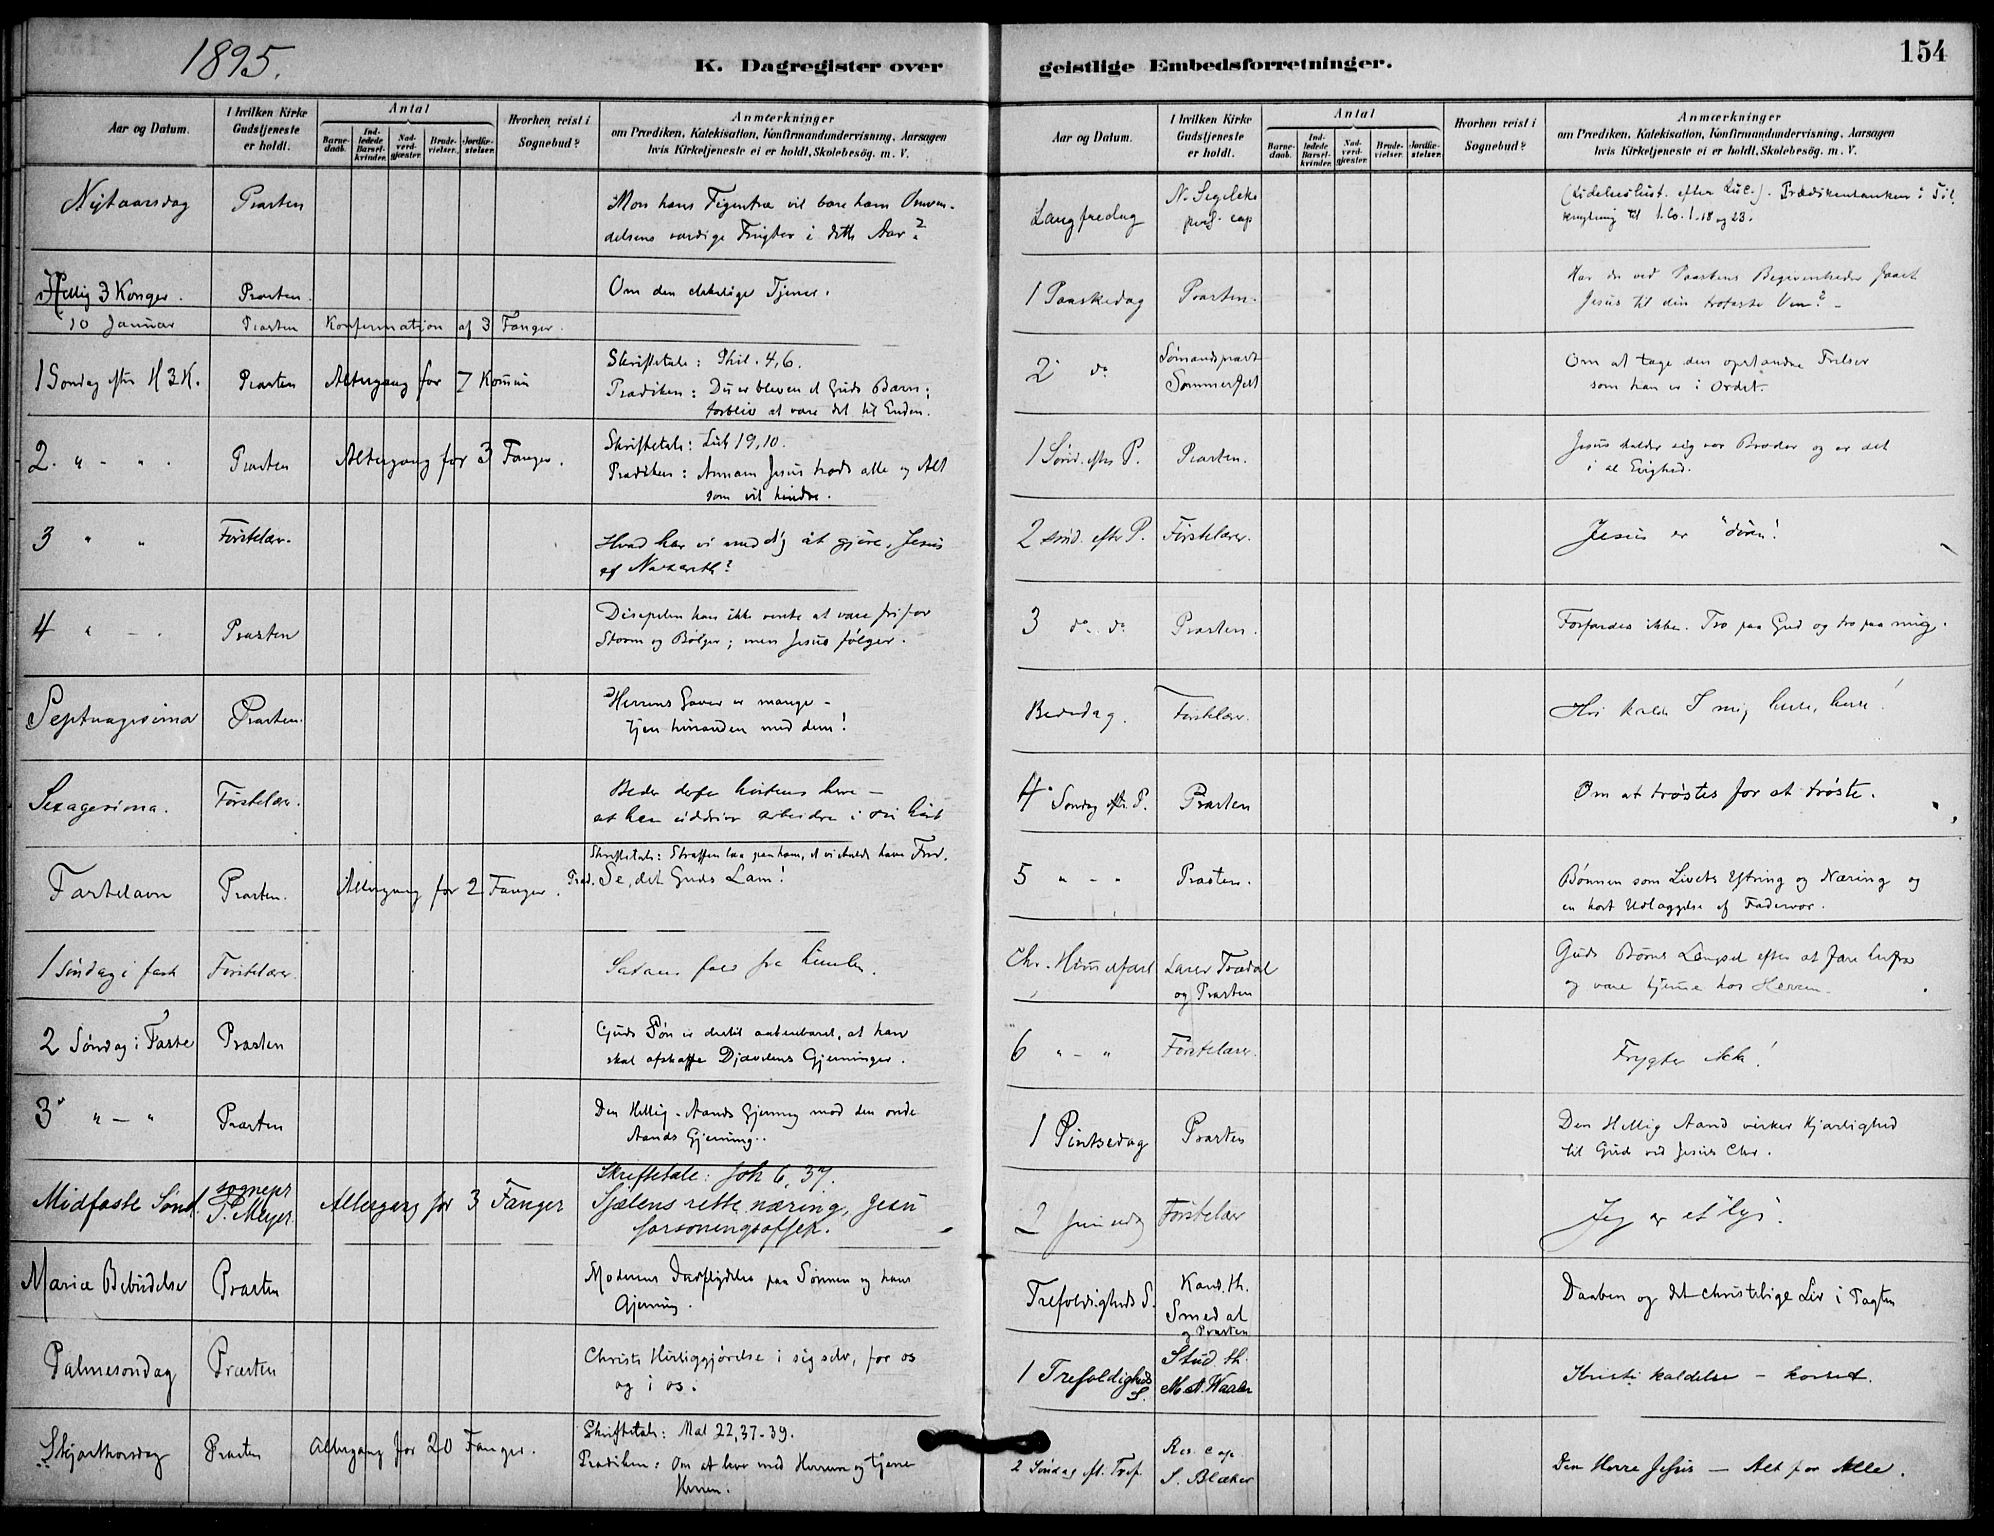 1895.
K. Dagregister over
Aar og Datum.
I hvilken Kirke
Gudstjeneste
er holdt.
Antal
Barne-
daab.
Ind-
ledede
Barsel-
kvinder.
Nad-
verd-
gjæster.
Brude-
vielser.
Jordfæ-
stelser.
Hvorhen reist i
Sognebud?
Anmærkninger
om Prædiken, Katekisation, Konfirmandundervisning, Aarsagen
hvis Kirketjeneste ei er holdt, Skolebesög. m. V.
Nytaarsdag Præsten Mon hans Figentræ vil bære ham Omven-
delsens værdige Frugter i dette Aar?
Hellig 3 Konger. Præsten. Om den elskelige Tjener.
10 Januar Præsten Konfirmation af 3 Fanger.
1 Søndag efter H 3 K. Præsten Altergang for 7 Kommun Skriftetale: Phil. 4,6.
Prædiken: Du er bleven et Guds Barn;
forbliv at være det til Enden.
2. " - " . Præsten Altergang for 3 Fanger. Skriftetale: Luk 19,10.
Prædiken: Annam Jesus trods alle og Alt
som vil hindre.
3 " " Førstelær. Hvad har vi med dig at gjøre, Jesus
af Nazareth?
4 " - . Præsten Disipelen kan ikke vente at være fri for
Storm og Bølger; men Jesus følger.
Septuagesima Præsten. Herrens Gaver er mange -
tjen hinanden med dem!
Sexagesima. Førstelær. Beder derfor høstens herre -
at han uddriver arbeidere i sin høst
Fastelavn Præsten. Altergang for 2 Fanger. Skriftetale: Straffen laa paa ham, at vi skulde have Fred.
Præd. Se, det Guds Lam!
1 Søndag i fast Førstelærer. Satans fald fra himlen.
2 Søndag i Faste Præsten Guds Søn er dertil aabenbaret, at han
skal afskaffe Djævelens Gjerninger.
3 " - " Præsten Den Hellig-Aands Gjerning mod den onde
Aands Gjerning.
Midfaste Sønd. sognepr
P. Meyer. Altergang for 3 Fanger Skriftetale: Joh 6, 37.
Sjælens rette næring, Jesu
forsoningsoffer.
Mariæ Bebudelse Præsten Moderens Indflydelse paa Sønnen og hans
Gjerning.
Palmesøndag Præsten Christi Herliggjørelse i sig selv, for os
og i os.
Skjærthorsdag Præsten Altergang for 20 Fanger. Skriftetale: Mat 22,37-39.
Prædiken: Om at leve med Herren og tjene
Herren.
geistlige Embedsforretninger.
154
Aar og Datum.
I hvilken Kirke
Gudstjeneste
er holdt.
Antal
Barne-
daab.
Ind-
ledede
Barsel-
kvinder.
Nad-
verd-
gjæster.
Brude-
vielser.
Jordfæ-
stelser.
Hvorhen reist i
Sognebud?
Anmærkninger
om Prædiken, Katekisation, Konfirmandundervisning, Aarsagen
hvis Kirketjeneste ei er holdt, Skolebesög. m. V.
Langfredag N. Segelcke
pers. cap (Lidelseshist. efter Luc.). Prædikentanken i Til
knytning til 1. Co. 1. 18 og 23.
1 Paaskedag Præsten. Har du ved Paaskens Begivenheder faaet
Jesus til din trofaste Ven? -
2. do Sømandspræst
Sommerfelt Om at tage den opstandne Frelser
som han er i Ordet.
1 Sønd. efter P. Præsten. Jesus kalder sig vor Broder og er det
i al Evighed.
2 sønd. efter P. Førstelærer. Jesus er "døren!
3 do do Præsten. Forfærdes ikke. Tro paa Gud og tro paa mig.
Bededag. Førstelærer. Hvi kalde I mig herre, herre!
4. Søndag eft. P. Præsten Om at trøstes for at trøste.
5 " - " Præsten. Bønnen som Livets Ytring og Næring og
en kort Udlæggelse af Fadervor.
Chr. Himmelfart Lærer Trædal
og Præsten Guds Børns Længsel efter at fare herfra
og være hjemme hos Herren.
6 " - " Førstelærer. Frygter ikke!
1 Pintsedag Præsten Den Hellig Aand virker Kjærlighed
til Gud ved Jesus Chr.
2 Førstelær Jeg er et lys!
Trefoldigheds S. Kand. th.
Smedal
og Præsten Daaben og det christelige Liv i Pagten
1 Trefoldigheds
S. Stud. th.
M. A. Waaler Kristi kaldelse - korset.
2 Søndag eft. Tref. Res. cap.
S. Blæker Den Herre Jesus - Alt for Alle.